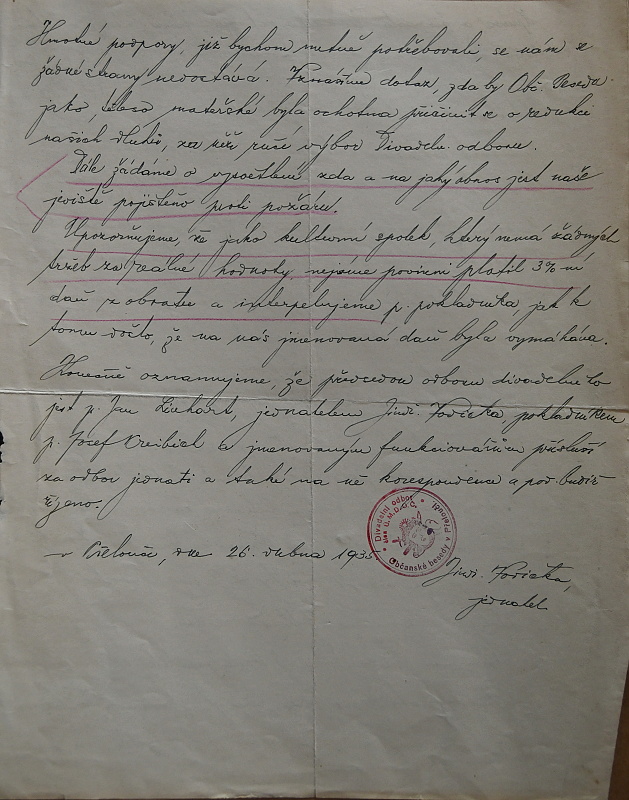 Hmotné podpory, již bychom nutně potřebovali, se nám se
žádné strany nedostává. Vznášíme dotaz, zda by Obč. Beseda
jako těleso mateřské byla ochotna přičinit se o redukci
našich dluhů, za něž ručí výbor Divadeln. odboru.
Dále žádáme o vysvětlení zda a na jaký obnos jest naše
jeviště pojištěno proti požáru.
Upozorňujeme, že jako kulturní spolek, který nemá žádných
tržeb za reálné hodnoty, nejsme povinni platit 3% ní
daň z obratu a interpelujeme p. pokladníka jak k
tomu došlo, že na nás jmenovaná daň byla vymáhána.
Konečně oznamujeme, že předsedou odboru divadelního
jest p. Jan Linhart, jednatelem Jindř. Vodička, pokladníkem
p. Josef Kreibich a jmenovaným funkcionářům přísluší
za odbor jednati a také na ně korespondence a pod. budiž
řízeno.
V Přelouči, dne 26. dubna 1935.
Divadelní odbor
člen Ú.M.D.O.Č.
Občanské besedy v Přelouči
Jindř. Vodička,
jednatel